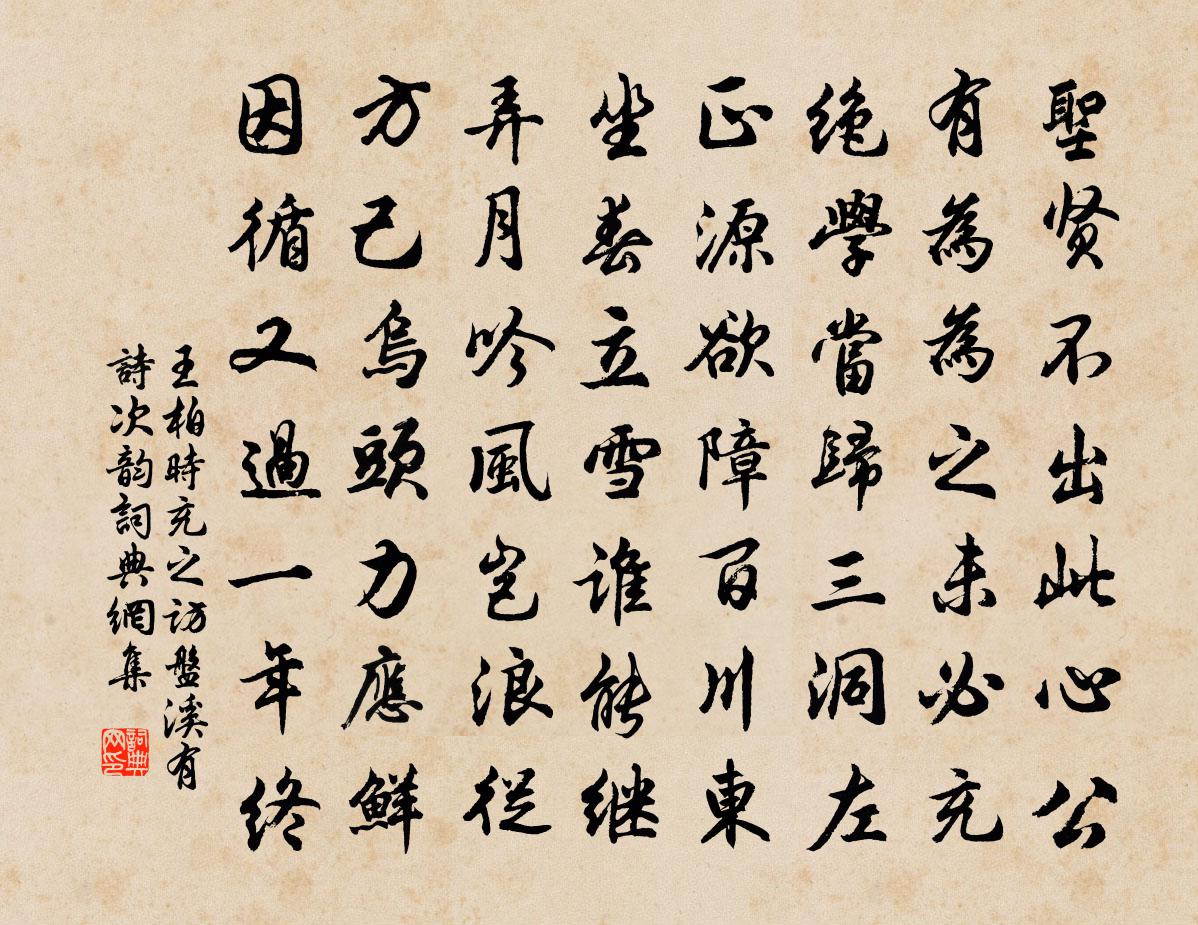 聖贤不出此心公
有為為之未必充
绝學當歸三洞左
正源欲障百川東
坐春立雪谁能继
弄月吟風岂浪從
方己烏頭力應鮮
因循又過一年终
王柏時充之訪盤溪有
詩次韵詞典網集
詞典网印